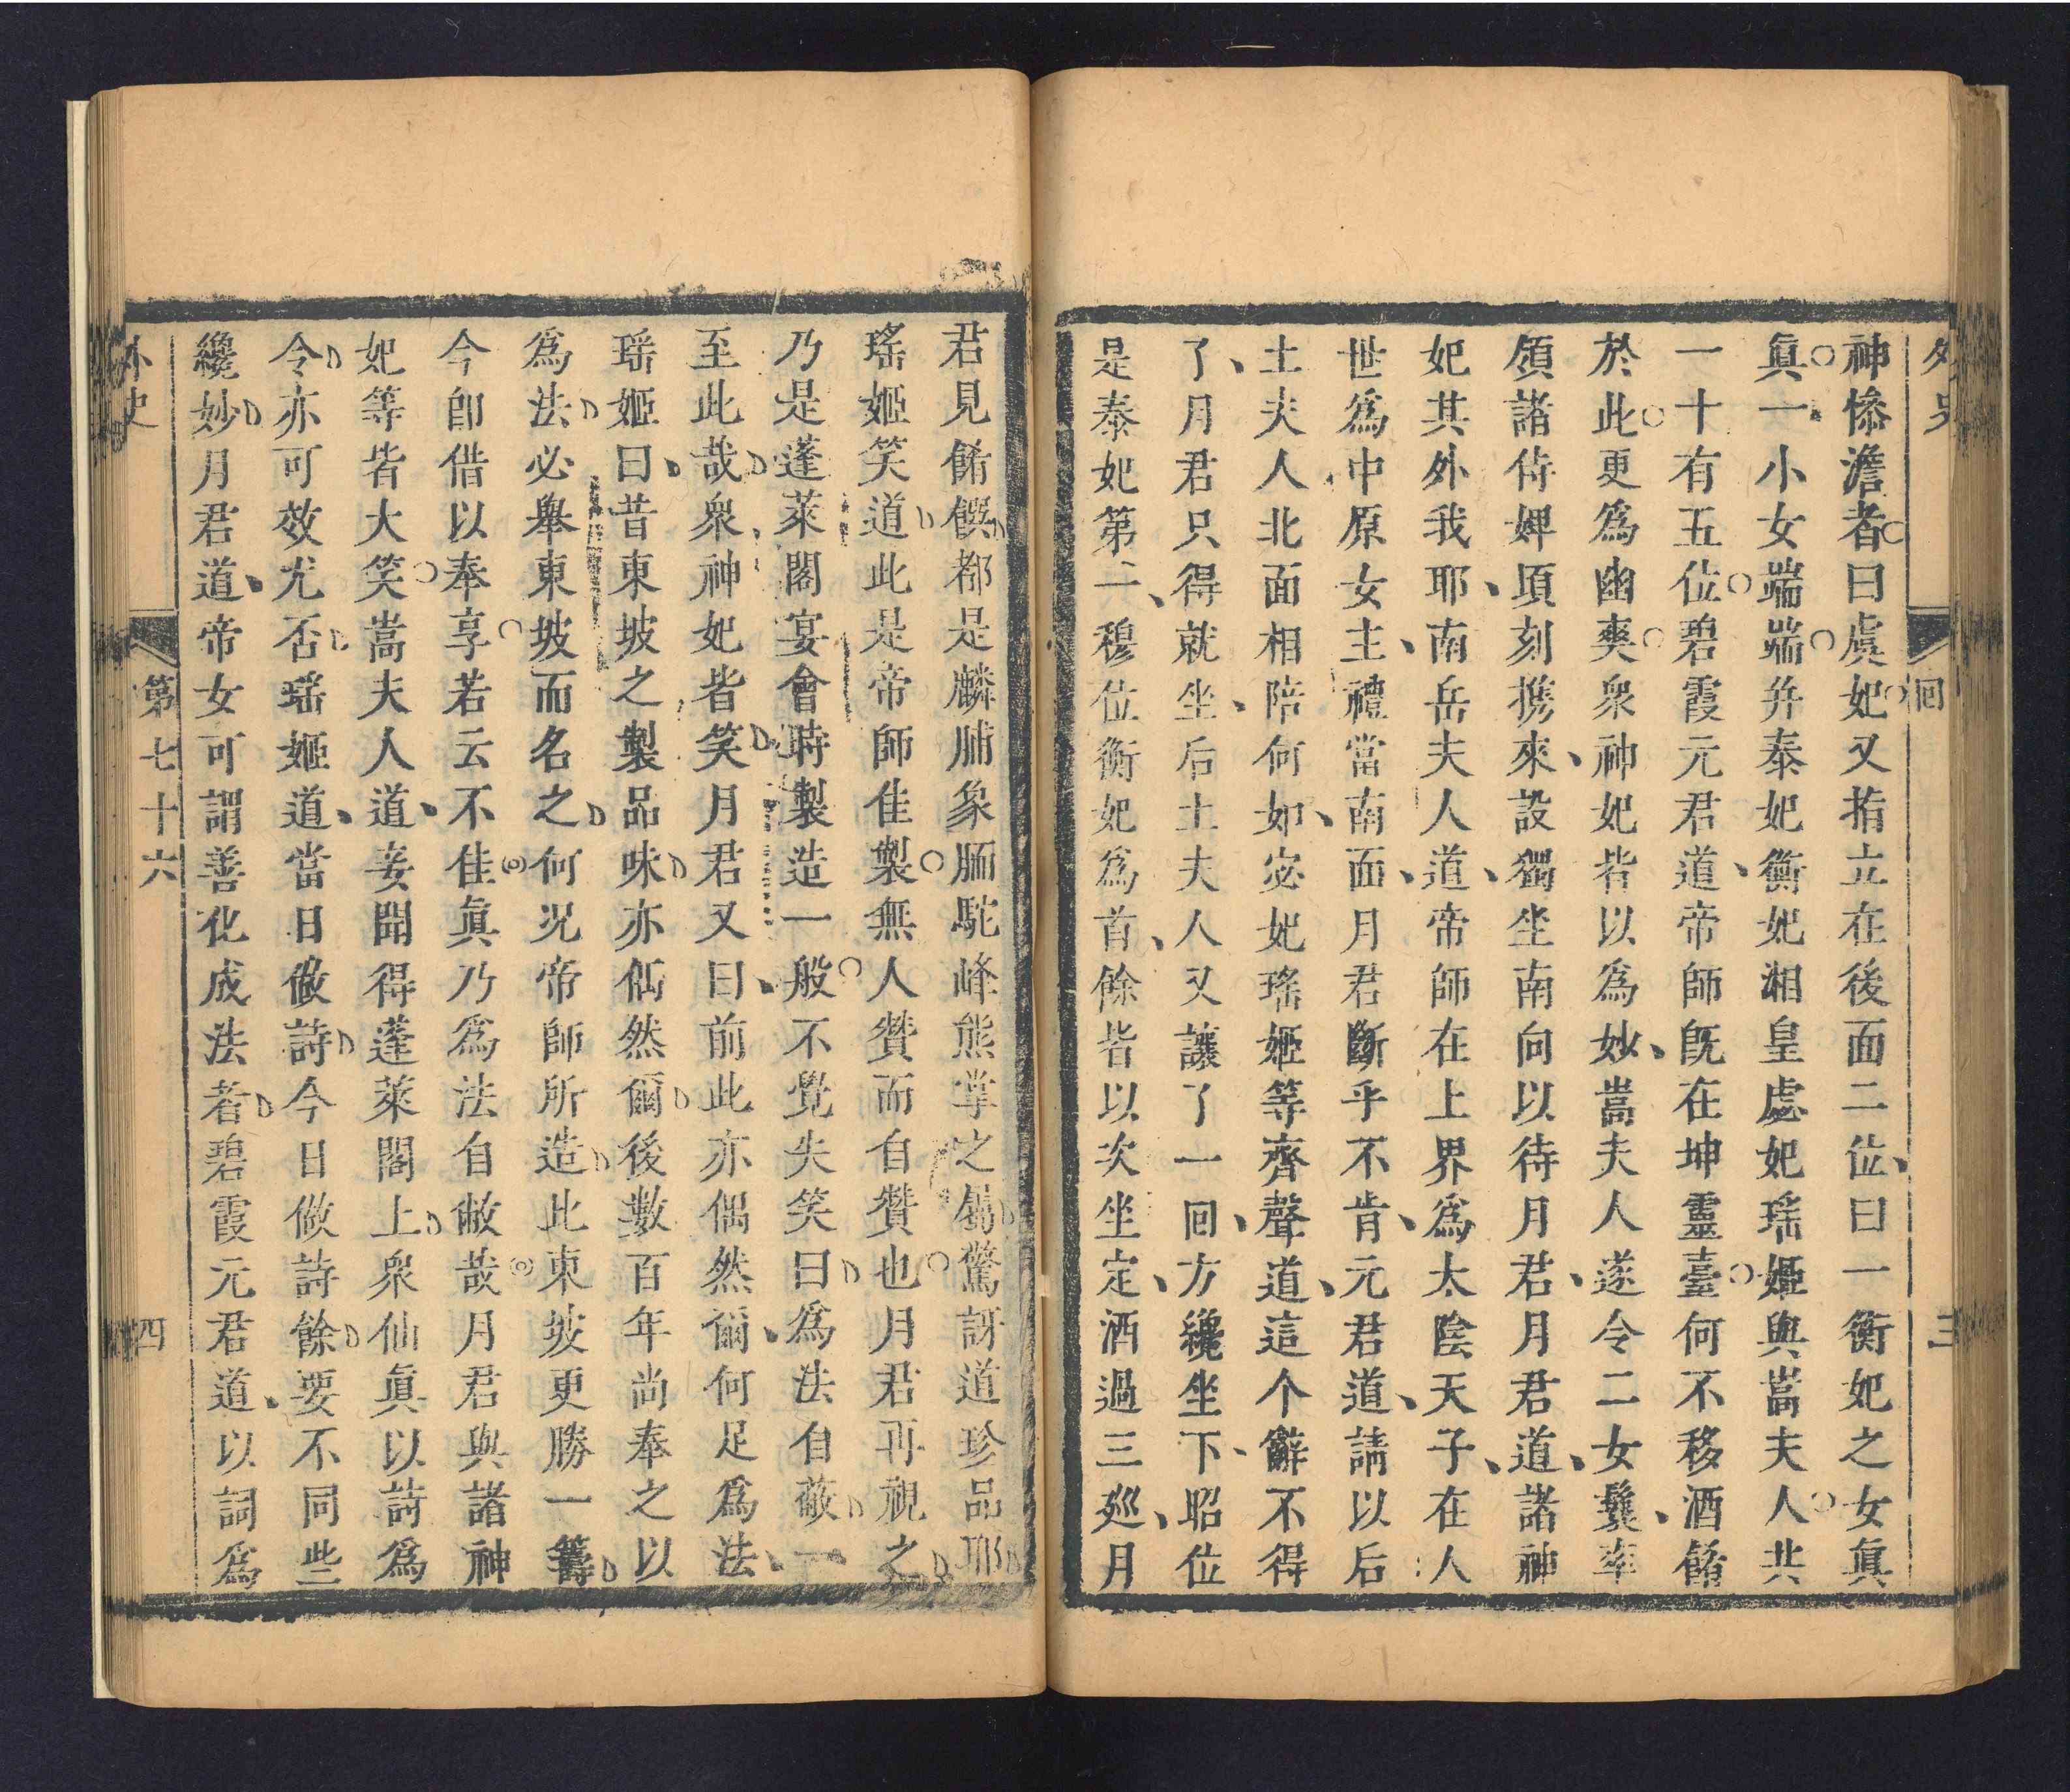 外史
回
三
神慘澹者曰虞妃又指立在後面二位曰一衡妃之女眞
眞一小女端端幷泰妃衡妃湘皇處妃瑤姬與嵩夫人共
一十有五位碧霞元君道帝師既在坤靈臺何不移酒餚
於此更爲幽爽衆神妃皆以爲妙嵩夫人遂令二女鬟率
領諸侍婢頃刻携來設獨坐南向以待月君月君道諸神
妃其外我耶南岳夫人道帝師在上界爲太陰天子在人
世爲中原女主禮當南面月君斷乎不肯元君道請以后
土夫人北面相陪何如宓妃瑤姬等齊聲道這个辭不得
了月君只得就坐后土夫人又讓了一回方纔坐下昭位
是泰妃第二穆位衡妃爲首餘皆以次坐定酒過三廵月
君見餚饌都是麟脯象胹駝峰熊掌之屬驚訝道珍品耶
瑤姬笑道此是帝師佳製無人贊而自贊也月君再視之
乃是蓬萊閣宴會時製造一般不覺失笑曰爲法自蔽一
至此哉衆神妃皆笑月君又曰前此亦偶然爾何足爲法
瑤姬曰昔東坡之製品味亦偶然爾後數百年尚奉之以
爲法必舉東坡而名之何況帝師所造此東坡更勝一籌
今卽借以奉享若云不佳眞乃爲法自敝哉月君與諸神
妃等皆大笑嵩夫人道妾聞得蓬萊閣上衆仙眞以詩爲
令亦可效尤否瑤姬道當日做詩今日做詩餘要不同些
纔妙月君道帝女可謂善化成法者碧霞元君道以詞爲
外史
第七十六
四